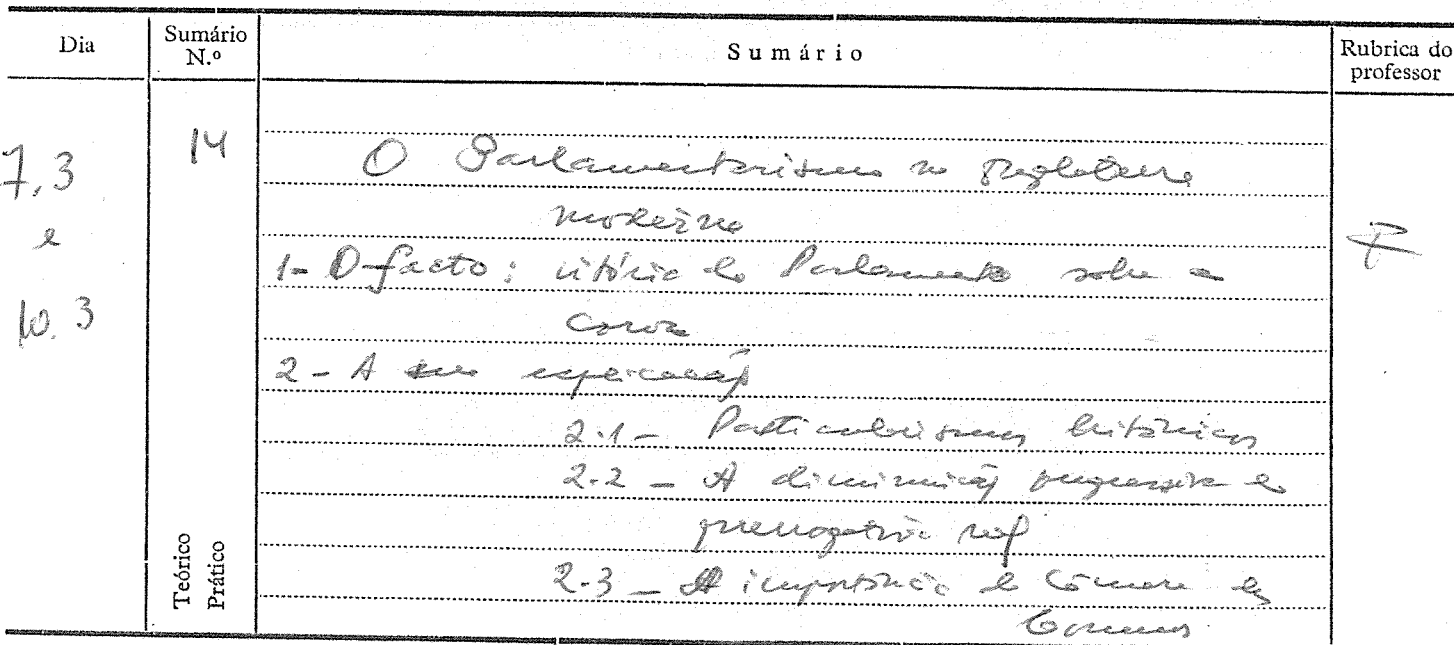 Dia
Sumário
N.º
Sumário
Rubrica do
professor
7.3
e
10.3
14
O Parlamentarismo na Inglaterra
moderna
1- O facto: vitória do Parlamento sobre a
Coroa
2 - A sua explicação
2.1 - Particularismos britânicos
2.2 - A diminuição progressiva da
prerrogativa real
2.3 - A importância da Câmara dos
Comuns
Teórico
Prático